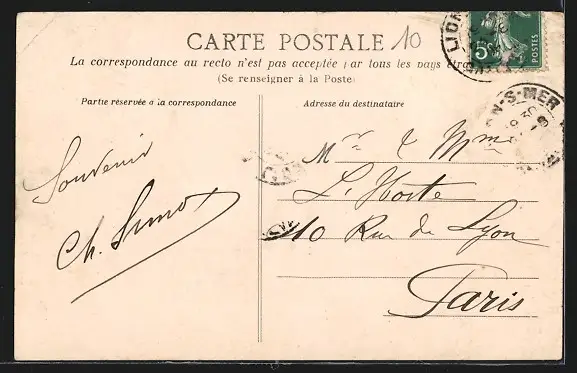 CARTE POSTALE
10
La correspondance au recto n'est pas acceptée par tous les pays
(Se renseigner à la Poste)
Partie réservée à la correspondance
Adresse du destinataire
5c
POSTES
LION
N-S-MER
Souvenir
Ch.
Mr & Mme
L'Hoste
10 Rue de Lyon
Paris